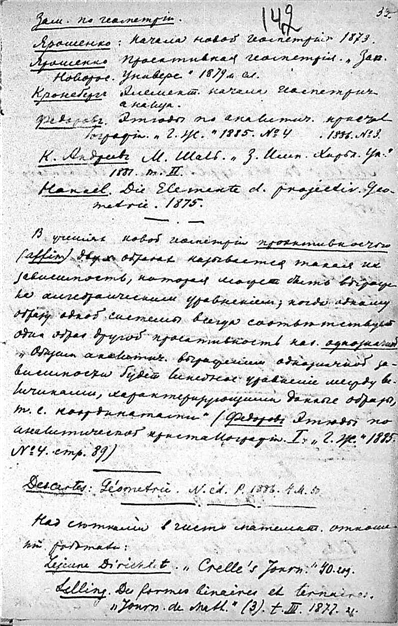 142
Зам. по геометріи.
Ярошенко: Начала новой геометріи 1873.
Ярошенко Проективная геометрія. „Зап.
Новорос. Универс" 1879 и сл.
Кронеберг Элемент. начала геометрич.
анализа.
Федоровъ Этюды по аналитич. кристал
лографіи „Г. Ж." 1885. № 4 1886. № 3.
К. Андреевъ М. Шаль. „З. Имп. Харьк. Ун."
1881. т. II.
Hankel. Die Elemente d. projectiv. Geo-
metrie. 1875.
В ученіи новой геометріи проективностью
(affin) двух образов называется такая их
зависимость, которая может быть выраже
на алгебраическим уравненіем; когда одному
образу одной системы всегда соответствует
один образ другой проективность наз. однозначной
„Общим аналитич. выраженіем однозначной за-
висимости будет линейное уравненіе между ве-
личинами, характеризующими данные образы,
т. е. координатами" (Федоровъ Этюды по
аналитической кристаллографіи I. „Г. Ж." 1885.
№ 4. стр. 89)
Descartes: Géométrie. N. éd. P. 1886.
Над сътками в чисто математ. отноше
ніи работали:
Lejeune Dirichlet. „Crelle's Journ." 40.
Selling. Des formes binaires et ternaires.
„Journ. de Math." (3). t. III. 1877.